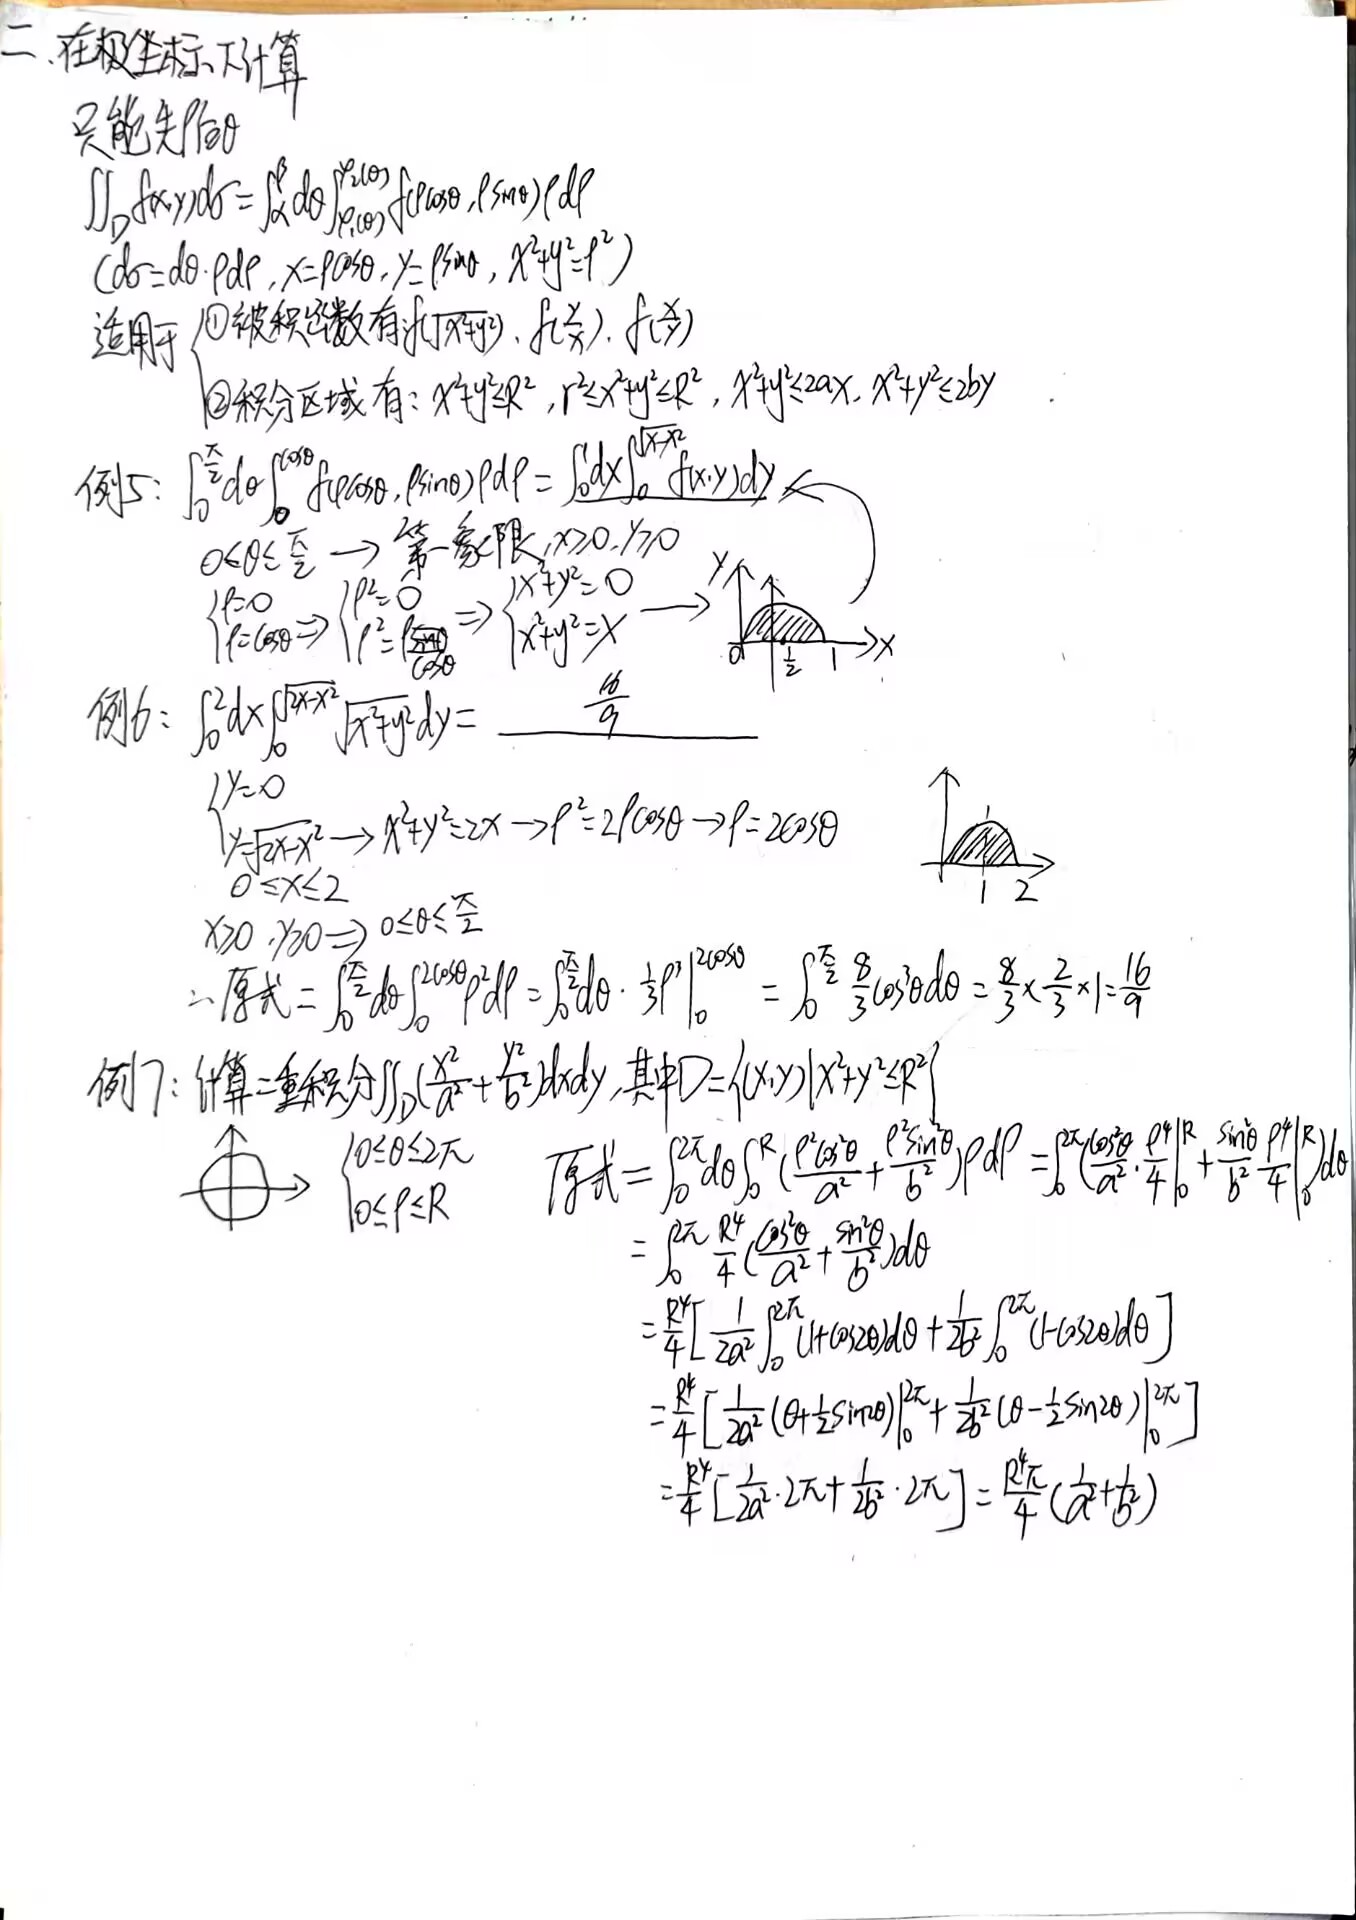 二、在极坐标下计算
只能先ρ后θ
∬_D f(x,y)dσ=∫_α^β dθ∫_{φ₁(θ)}^{φ₂(θ)} f(ρcosθ,ρsinθ)ρdρ
(dσ=dθ·ρdρ, x=ρcosθ, y=ρsinθ, x²+y²=ρ²)
适用于 { ①被积函数有:f(√(x²+y²))、f(y/x)、f(x/y)
②积分区域有: x²+y²≤R², r²≤x²+y²≤R², x²+y²≤2ax, x²+y²≤2by
例5: ∫_0^{π/2} dθ∫_0^{cosθ} f(ρcosθ,ρsinθ)ρdρ=∫_0^1 dx∫_0^{√(x-x²)} f(x,y)dy
0≤θ≤π/2 → 第一象限, x≥0, y≥0
{ρ=0 ρ=cosθ ⇒ {ρ²=0 ρ²=ρcosθ ⇒ {x²+y²=0 x²+y²=x →
y 0 1/2 1 x
例6: ∫_0^2 dx∫_0^{√(2x-x²)} √(x²+y²) dy= 16/9
{y=0
y=√(2x-x²) → x²+y²=2x → ρ²=2ρcosθ → ρ=2cosθ
1 2
0≤x≤2
x≥0, y≥0 ⇒ 0≤θ≤π/2
∴原式=∫_0^{π/2} dθ∫_0^{2cosθ} ρ²dρ=∫_0^{π/2} dθ·1/3ρ³|_0^{2cosθ} =∫_0^{π/2} 8/3 cos³θdθ=8/3×2/3×1=16/9
例7: 计算二重积分∬_D(x²/a²+y²/b²)dxdy,其中D={(x,y)|x²+y²≤R²}
{0≤θ≤2π
0≤ρ≤R
原式=∫_0^{2π} dθ∫_0^R (ρ²cos²θ/a²+ρ²sin²θ/b²)ρdρ =∫_0^{2π}(cos²θ/a²·ρ⁴/4|_0^R+sin²θ/b² ρ⁴/4|_0^R)dθ
=∫_0^{2π} R⁴/4(cos²θ/a²+sin²θ/b²)dθ
=R⁴/4[1/2a²∫_0^{2π}(1+cos2θ)dθ+1/2b²∫_0^{2π}(1-cos2θ)dθ]
=R⁴/4[1/2a²(θ+1/2sin2θ)|_0^{2π}+1/2b²(θ-1/2sin2θ)|_0^{2π}]
=R⁴/4[1/2a²·2π+1/2b²·2π]=R⁴π/4(1/a²+1/b²)